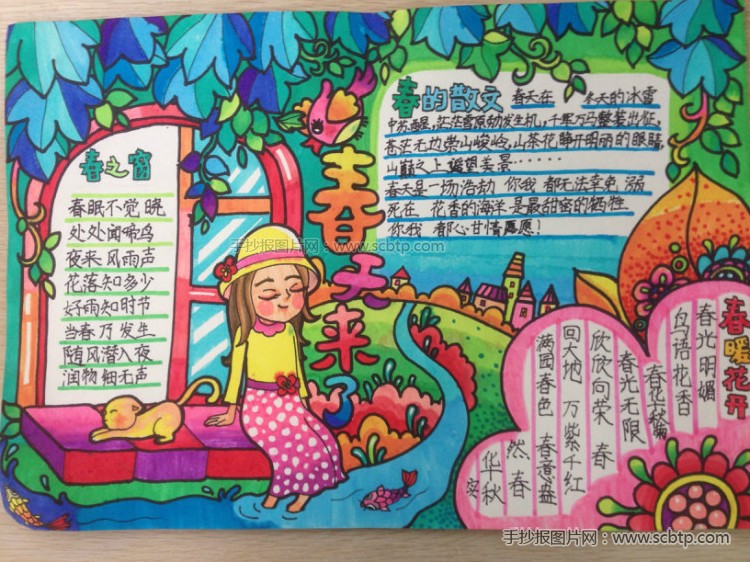 春之窗
春眠不觉晓
处处闻啼鸟
夜来风雨声
花落知多少
好雨知时节
当春乃发生
随风潜入夜
润物细无声
春天来了
春的散文
春天在 冬天的冰雪
中苏醒,茫茫雪原勃发生机,千军万马整装出征,
苍茫无边崇山峻岭,山茶花静开明丽的眼睛,
山巅之上遥望美景······
春天是一场浩劫 你我都无法幸免 溺
死在 花香的海洋 是最甜密的牺牲
你我 都心甘情愿!
春暖花开
春光明媚
鸟语花香
春花秋
春光无限
欣欣向荣 春
回大地 万紫千红
满园春色 春意盎
然 春
华秋
实
手抄报图片网:www.scbtp.com
手抄报图片网:www.scbtp.com